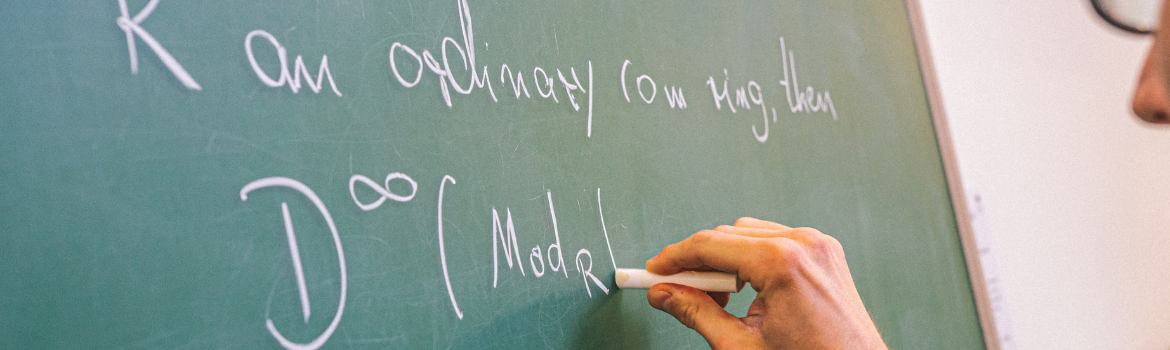 R an ordinary com ring, then
D^∞ (Mod_R